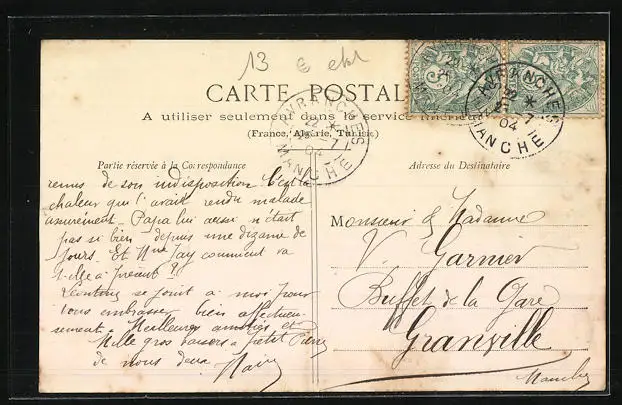 13 €
CARTE POSTALE
A utiliser seulement dans le service intérieur
(France, Algérie, Tunisie)
Partie réservée à la Correspondance
Adresse du Destinataire
AVRANCHES
22 - 7
04
MANCHE
AVRANCHES
22 - 7
04
MANCHE
remis de son indisposition
chaleur qui l'avait rendu malade
assurément. Papa lui aussi n'était
pas si bien depuis une dizaine de
jours. Et Mme Jay comment va
t-elle à présent ?
se joint à moi pour
vous embrasser bien affectueu-
sement. Meilleures amitiés et
Mille gros baisers à petit Pierre
de nous deux
Monsieur & Madame
V. Garnier
Buffet de la Gare
Granville
Manche